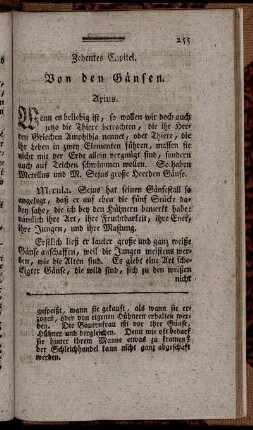 255
Zehentes Capitel.
Von den Gänsen.
Axius.
Wenn es beliebig ist, so wollen wir doch auch
jetzo die Thiere betrachten, die ihr Her-
ren Griechen Amphibia nennet, oder Thiere, die
ihr Leben in zwey Elementen führen, massen sie
nicht mit der Erde allein vergnügt sind, sondern
auch auf Teichen schwimmen wollen. So haben
Metellus und M. Sejus große Heerden Gänse.
Merula. Sejus hat seinen Gänsestall so
angelegt, daß er auf eben die fünf Stücke da-
bey sahe, die ich bey den Hühnern bemerkt habe:
nämlich ihre Art, ihre Fruchtbarkeit, ihre Eyer,
ihre Jungen, und ihre Mastung.
Erstlich ließ er lauter große und ganz weiße
Gänse anschaffen, weil die Jungen meistens wer-
den, wie die Alten sind. Es giebt eine Art sche-
ckigter Gänse, die wild sind, sich zu den weißen
nicht
gespeißt, wann sie gekauft, als wann sie er-
zogen, oder von eigenen Hühnern erhalten wer-
den. Die Bauersfrau ißt vor ihre Gänse,
Hühner und dergleichen. Denn wie oft bedarf
sie hinter ihrem Manne etwas zu kramen?
der Schleichhandel kann nicht ganz abgeschaft
werden.